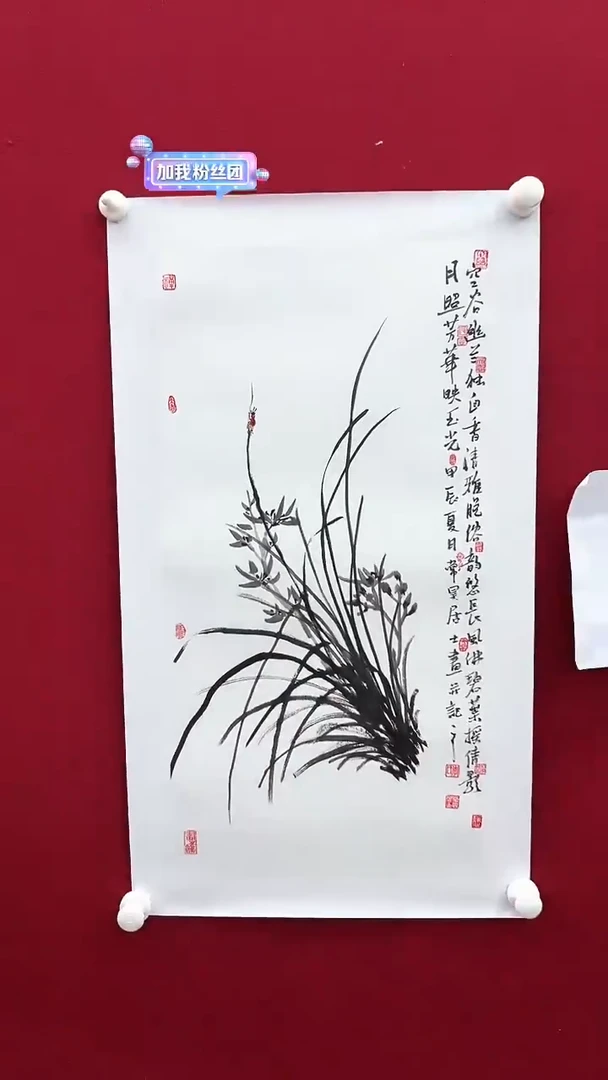 加我粉丝团
空谷幽兰独自香清雅脱俗韵悠长风拂碧葉摇倩影
月照芳華映玉光甲辰夏月常昊居士畫并記之